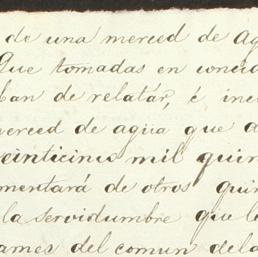 de una merced de Ag
Que tomadas en concid
ban de relatár, é inc
merced de agua que a
veinticinco mil quin
mentará de otros quin
la servidumbre que le
ames del comun dela